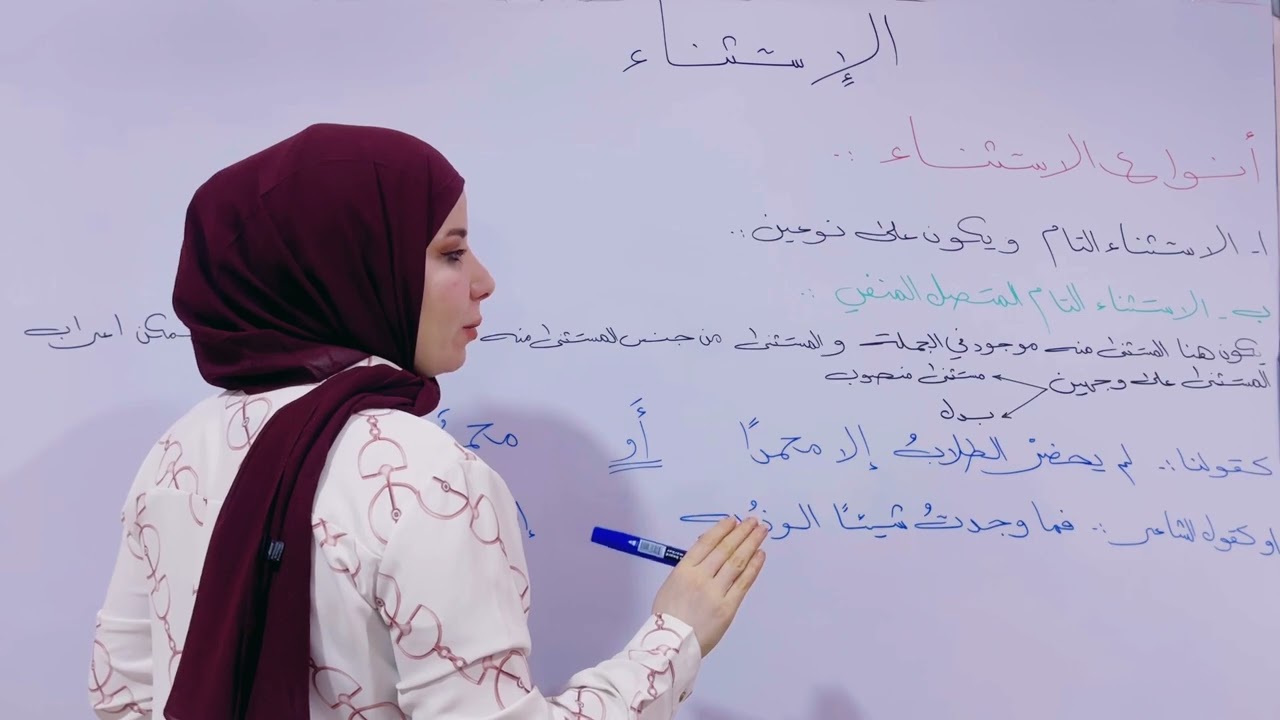 الإستثناء
أنواع الاستثناء :.
١- الاستثناء التام ويكون على نوعين :.
ب- الاستثناء التام المتصل المنفي :.
يكون هنا المستثنى منه موجود في الجملة والمستثنى من جنس المستثنى منه يمكن اعراب
المستثنى على وجهين مستثنى منصوب
بدل
كقولنا :. لم يحضرْ الطلابُ إلا محمدًا أَو
او كقول الشاعر :. فما وجدتُ شيئًا